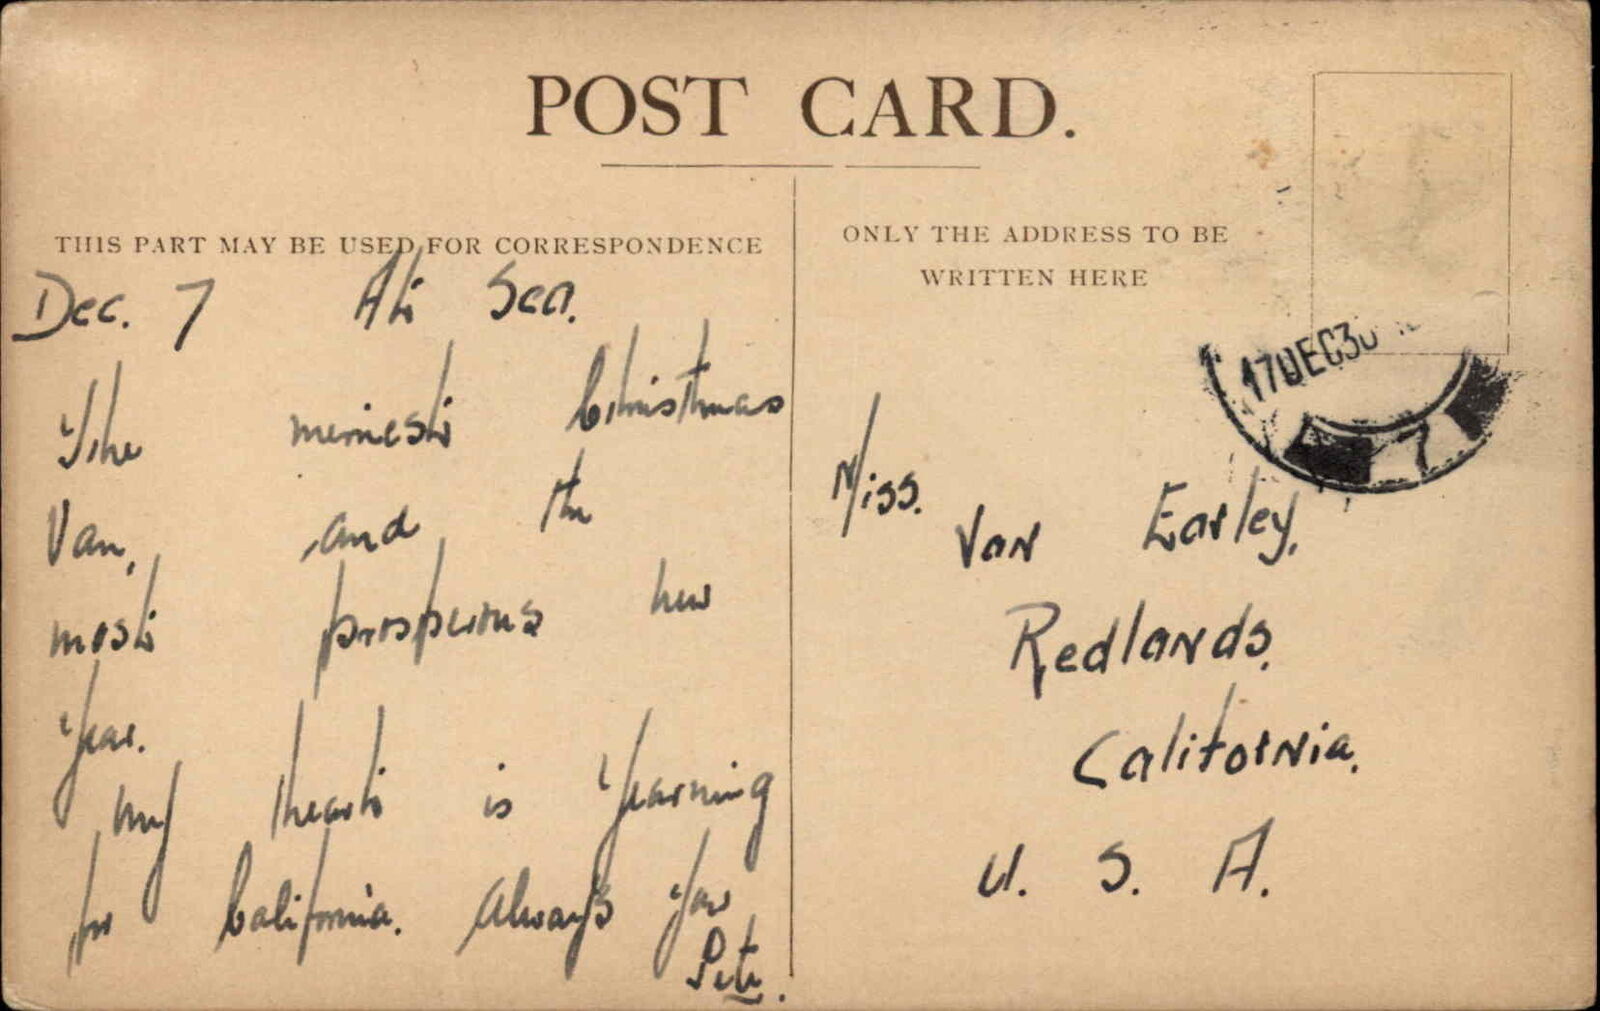 POST CARD.
THIS PART MAY BE USED FOR CORRESPONDENCE
Dec. 7 At Sea.
The merriest Christmas
Van, and the
most prosperous new
Year.
My heart is yearning
for California. Always your
Pete.
ONLY THE ADDRESS TO BE
WRITTEN HERE
17 DEC 30
7
Miss.
Van Earley.
Redlands.
California.
U. S. A.